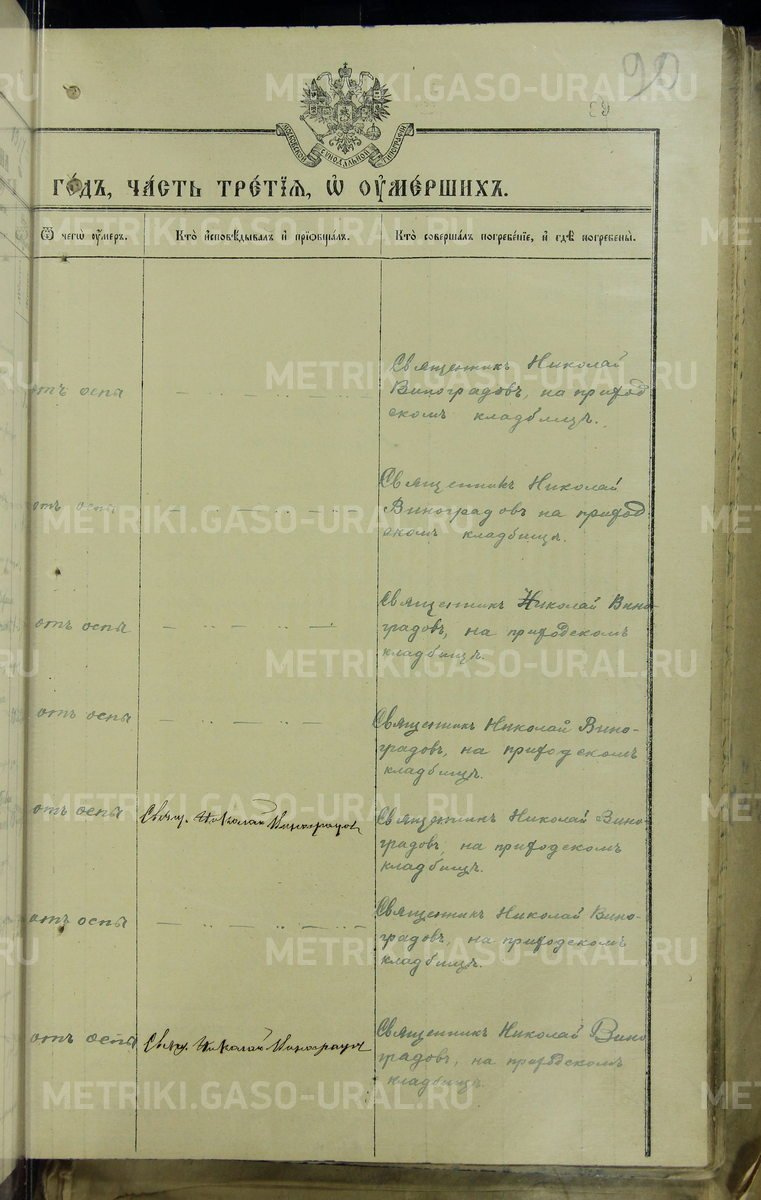 90
89
МОСКОВСКОЙ СѴНОДАЛЬНОЙ ТИПОГРАФІИ
ГО́ДЪ, ЧА́СТЬ ТРЕ́ТЇѦ, Ѡ҆ ОУ҆МЕ́РШИХЪ.
Ѿ чегѡ̀ ѹ҆́меръ.
Кто̀ и҆сповѣ́дывалъ и҆ прїѡбща́лъ.
Кто̀ соверша́лъ погребе́нїе, и҆ гдѣ̀ погребены̀.
отъ оспы
Священникъ Николай
Виноградовъ, на приход
скомъ кладбищѣ.
отъ оспы
Священникъ Николай
Виноградовъ на приход
скомъ кладбищѣ.
отъ оспы
Священникъ Николай Вино-
градовъ, на приходскомъ
кладбищѣ.
отъ оспы
Священникъ Николай Вино-
градовъ, на приходскомъ
кладбищѣ.
отъ оспы
Свящ. Николай Виноградов
Священникъ Николай Вино-
градовъ, на приходскомъ
кладбищѣ.
отъ оспы
Священникъ Николай Вино-
градовъ, на приходскомъ
кладбищѣ.
отъ оспы
Свящ. Николай Виноградов
Священникъ Николай Вино
градовъ, на приходскомъ
кладбищѣ.
METRIKI.GASO-URAL.RU